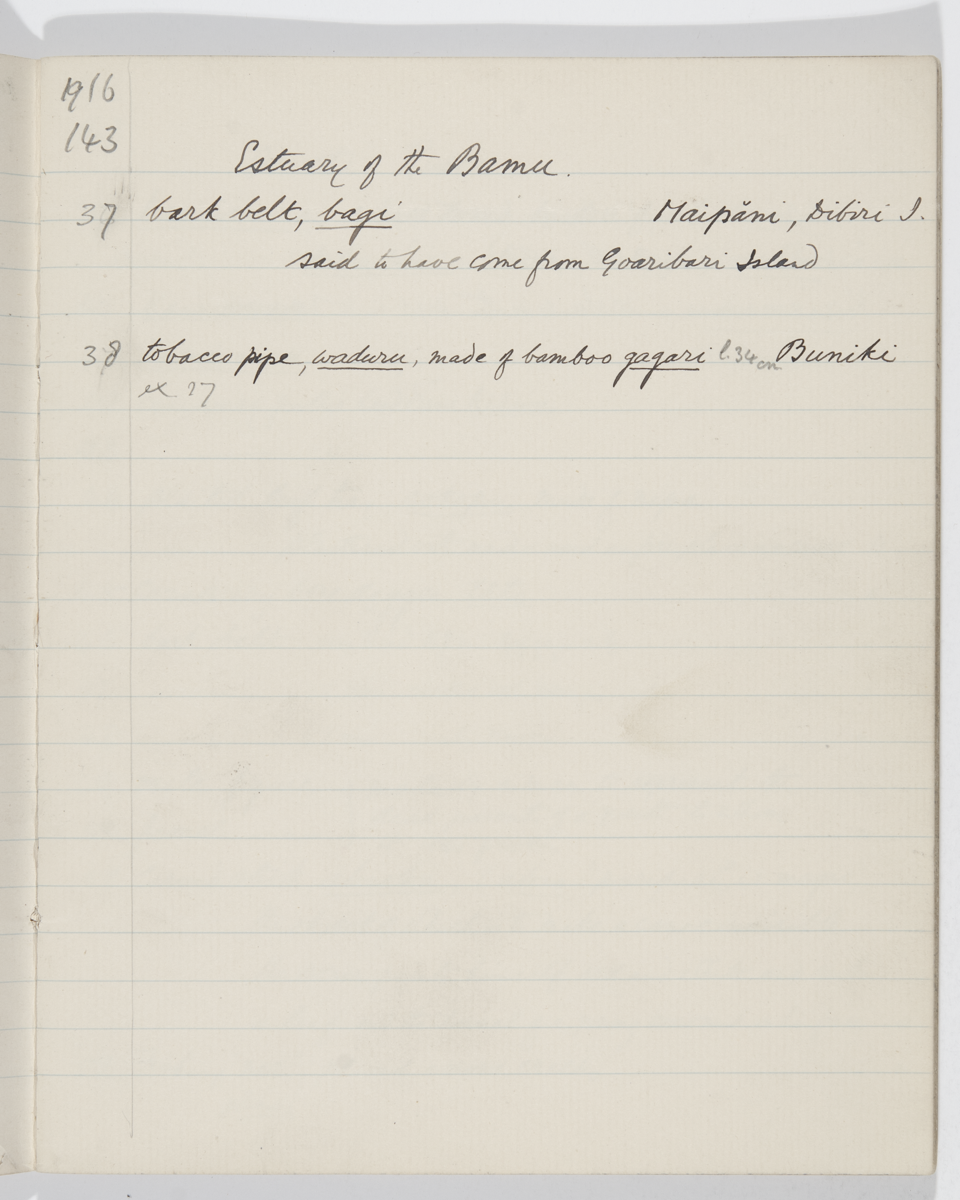 1916
143
Estuary of the Bamu.
37 bark belt, bagi Maipăni, Dibiri I.
said to have come from Goaribari Island
38 tobacco pipe, waduru, made of bamboo gagari l. 34 cm Buniki
ex 27